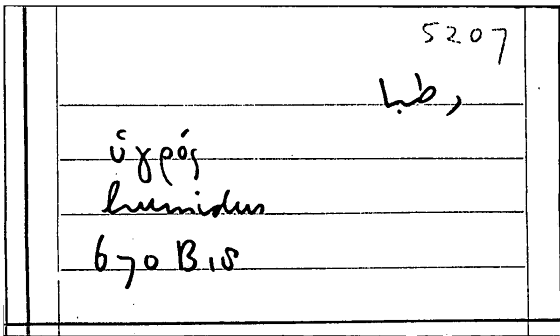 5207
رطبا
ὑγρός
humidus
670 B 18